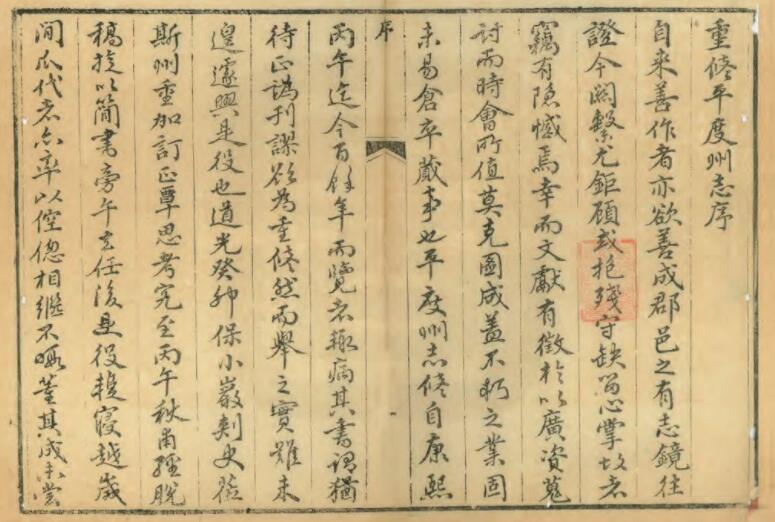 重修平度州志序
自來善作者亦欲善成郡邑之有志鏡往
證今關繫尤鉅顧或抱殘守缺留心掌故者
竊有隱憾焉幸而文獻有徵於以廣資蒐
討而時會所值莫克圖成蓋不朽之業固
未易倉卒蕆事也平度州志修自康熙
序
丙午迄今百餘年而覽者輙病其書謂猶
待正譌刊謬欲為重修然而舉之實難未
遑遽興是役也道光癸卯保小巖刺史蒞
斯州重加訂正覃思考究至丙午秋甫經脫
稿旋以簡書旁午去任後是役輟寢越歲
間瓜代者亦率以倥偬相繼不暇董其成未嘗